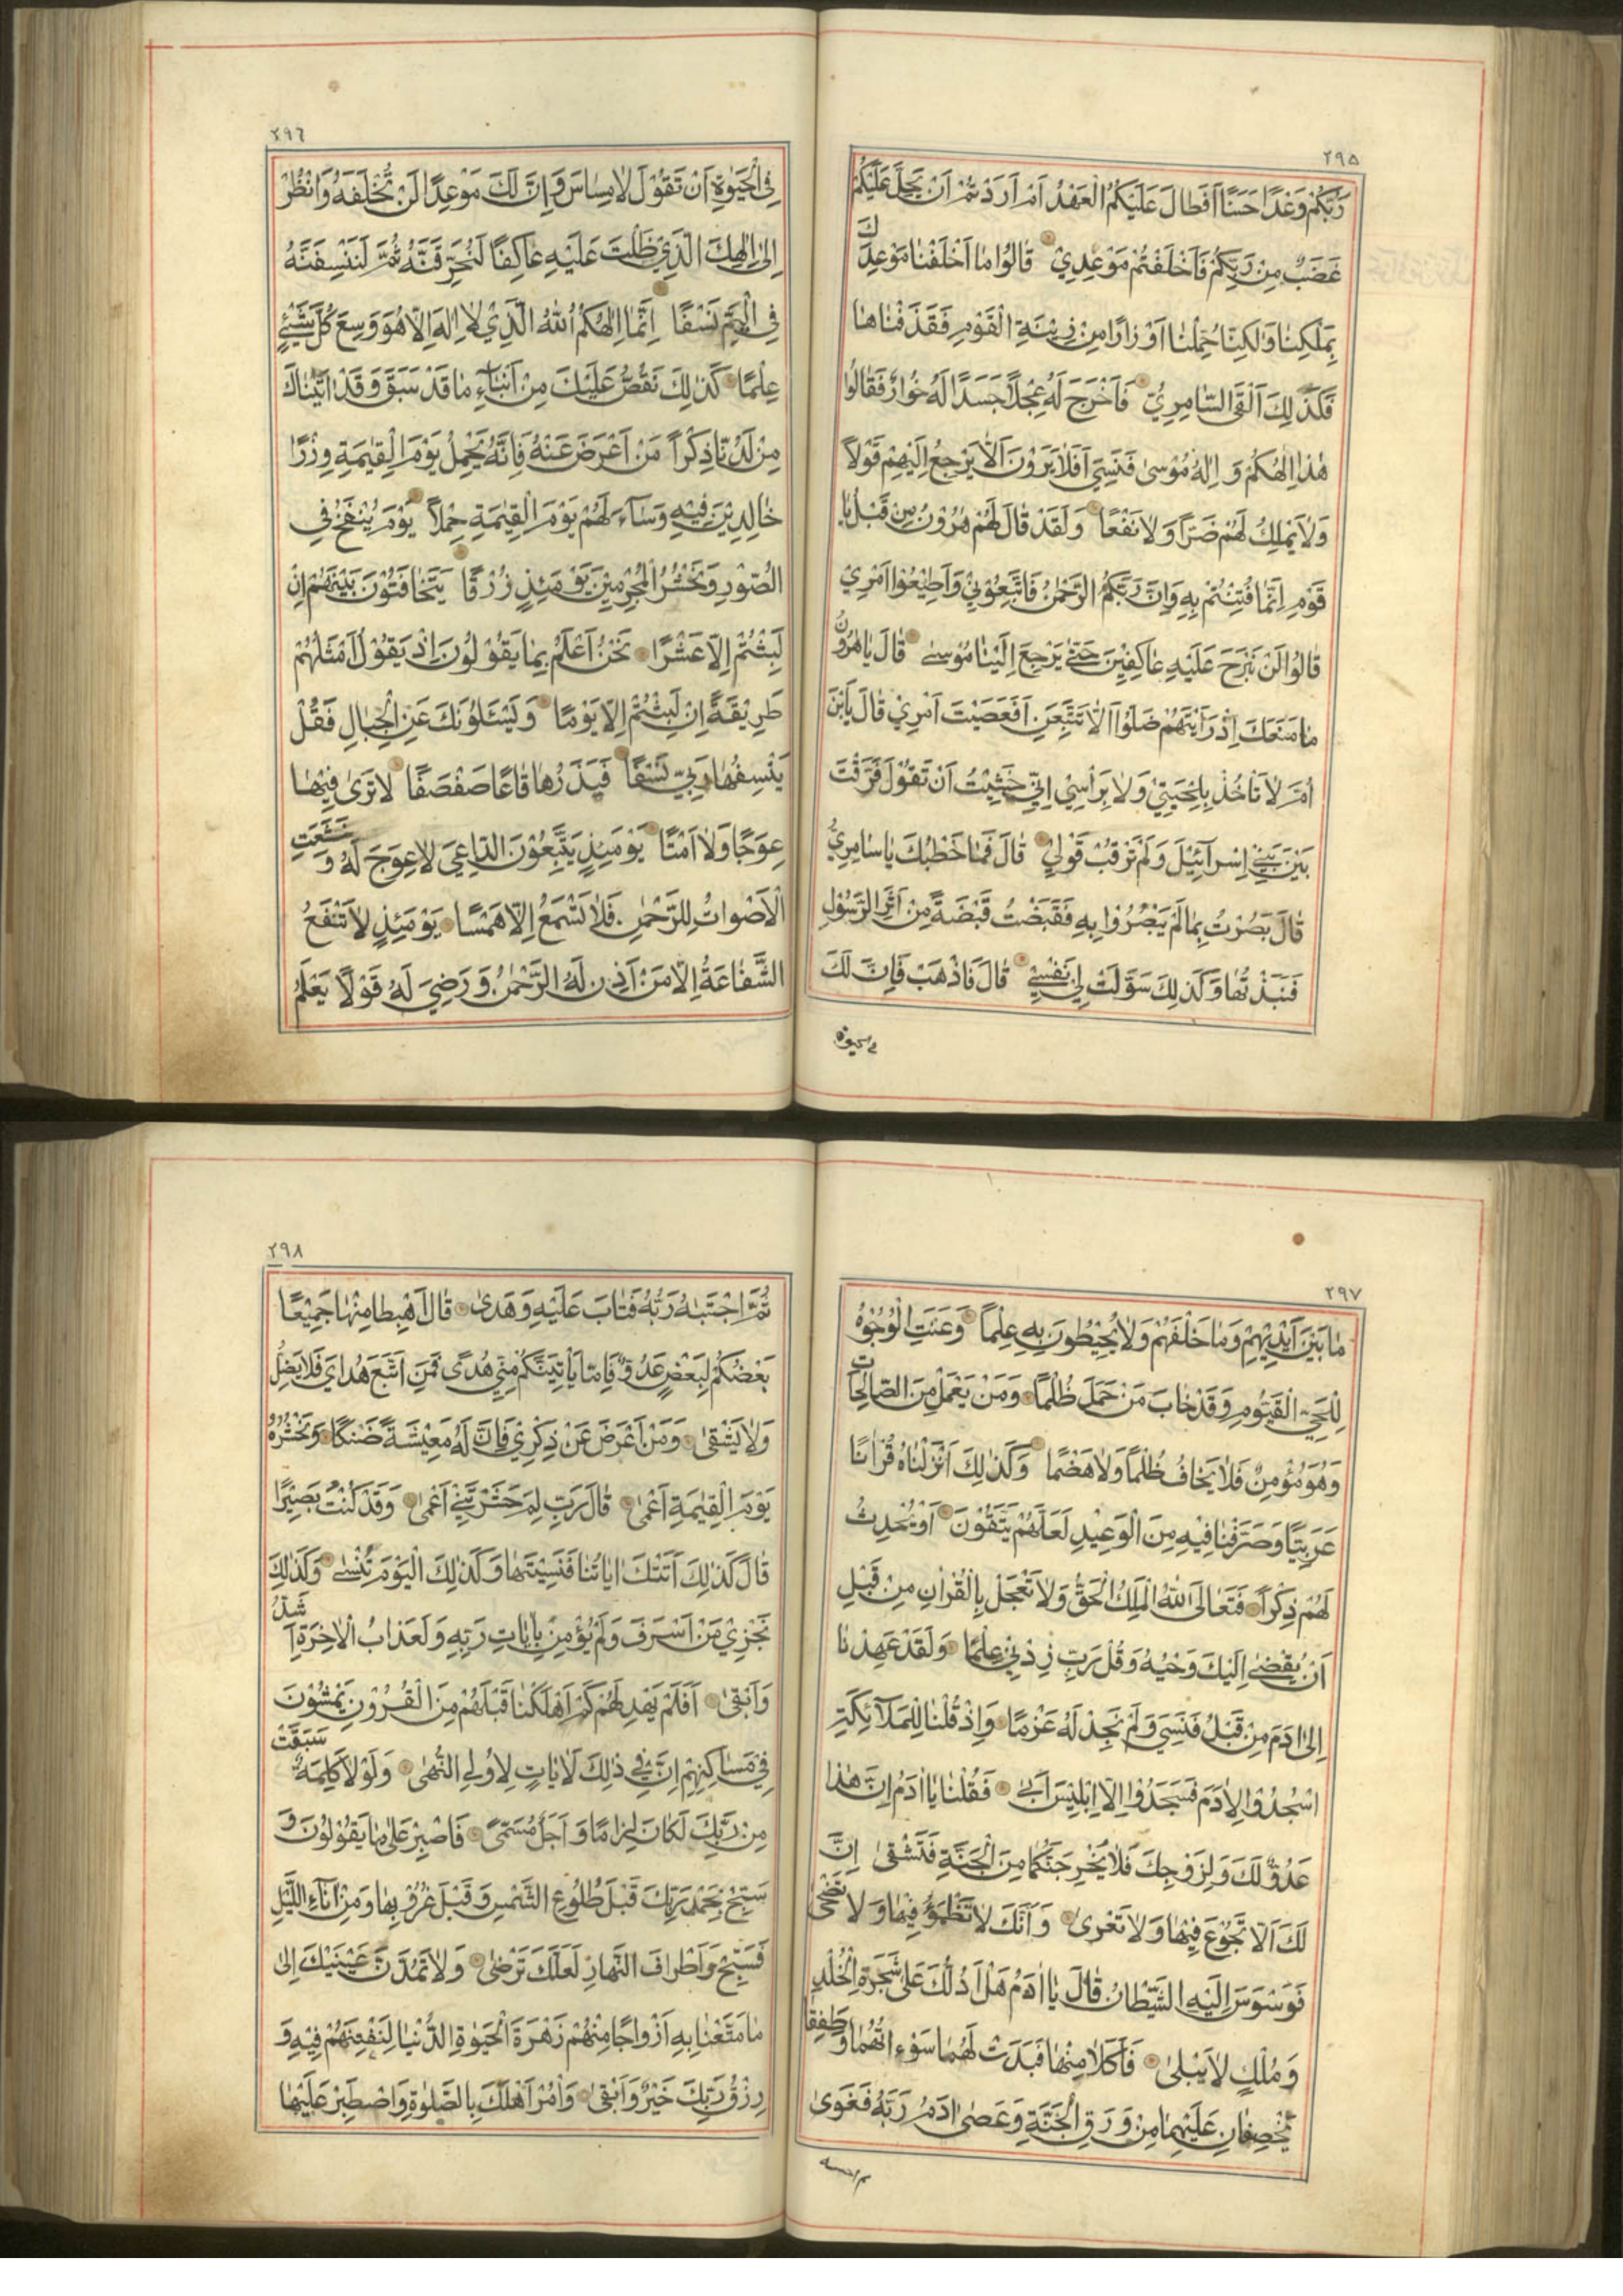 ٢٩٥
رَبُّكُمْ وَعْدًا حَسَنًا اَفَطَالَ عَلَيْكُمُ الْعَهْدُ اَمْ اَرَدْتُمْ اَنْ يَحِلَّ عَلَيْكُمْ
غَضَبٌ مِنْ رَبِّكُمْ فَاَخْلَفْتُمْ مَوْعِدِيْ قَالُوْا مَا اَخْلَفْنَا مَوْعِدَكَ
بِمَلْكِنَا وَلٰكِنَّا حُمِّلْنَا اَوْزَارًا مِنْ زِيْنَةِ الْقَوْمِ فَقَذَفْنَاهَا
فَكَذٰلِكَ اَلْقَى السَّامِرِيُّ فَاَخْرَجَ لَهُمْ عِجْلًا جَسَدًا لَهُ خُوَارٌ فَقَالُوْا
هٰذَا اِلٰهُكُمْ وَ اِلٰهُ مُوْسٰى فَنَسِيَ اَفَلَا يَرَوْنَ اَلَّا يَرْجِعُ اِلَيْهِمْ قَوْلًا
وَلَا يَمْلِكُ لَهُمْ ضَرًّا وَلَا نَفْعًا وَلَقَدْ قَالَ لَهُمْ هٰرُوْنُ مِنْ قَبْلُ يَا
قَوْمِ اِنَّمَا فُتِنْتُمْ بِهِ وَاِنَّ رَبَّكُمُ الرَّحْمٰنُ فَاتَّبِعُوْنِيْ وَاَطِيْعُوْا اَمْرِيْ
قَالُوْا لَنْ نَبْرَحَ عَلَيْهِ عَاكِفِيْنَ حَتّٰى يَرْجِعَ اِلَيْنَا مُوْسٰى قَالَ يَا هٰرُوْنُ
مَا مَنَعَكَ اِذْ رَاَيْتَهُمْ ضَلُّوْا اَلَّا تَتَّبِعَنِ اَفَعَصَيْتَ اَمْرِيْ قَالَ يَابْنَ
اُمَّ لَا تَأْخُذْ بِلِحْيَتِيْ وَلَا بِرَأْسِيْ اِنِّيْ خَشِيْتُ اَنْ تَقُوْلَ فَرَّقْتَ
بَيْنَ بَنِيْ اِسْرَآئِيْلَ وَلَمْ تَرْقُبْ قَوْلِيْ قَالَ فَمَا خَطْبُكَ يَا سَامِرِيُّ
قَالَ بَصُرْتُ بِمَا لَمْ يَبْصُرُوْا بِهِ فَقَبَضْتُ قَبْضَةً مِنْ اَثَرِ الرَّسُوْلِ
فَنَبَذْتُهَا وَكَذٰلِكَ سَوَّلَتْ لِيْ نَفْسِيْ قَالَ فَاذْهَبْ فَاِنَّ لَكَ
في الحيوة
٢٩٦
فِي الْحَيٰوةِ اَنْ تَقُوْلَ لَا مِسَاسَ وَاِنَّ لَكَ مَوْعِدًا لَنْ تُخْلَفَهُ وَانْظُرْ
اِلٰى اِلٰهِكَ الَّذِيْ ظَلْتَ عَلَيْهِ عَاكِفًا لَنُحَرِّقَنَّهُ ثُمَّ لَنَنْسِفَنَّهُ
فِي الْيَمِّ نَسْفًا اِنَّمَا اِلٰهُكُمُ اللّٰهُ الَّذِيْ لَا اِلٰهَ اِلَّا هُوَ وَسِعَ كُلَّ شَيْئٍ
عِلْمًا كَذٰلِكَ نَقُصُّ عَلَيْكَ مِنْ اَنْبَآءِ مَا قَدْ سَبَقَ وَقَدْ اٰتَيْنَاكَ
مِنْ لَدُنَّا ذِكْرًا مَنْ اَعْرَضَ عَنْهُ فَاِنَّهُ يَحْمِلُ يَوْمَ الْقِيٰمَةِ وِزْرًا
خَالِدِيْنَ فِيْهِ وَسَآءَ لَهُمْ يَوْمَ الْقِيٰمَةِ حِمْلًا يَوْمَ يُنْفَخُ فِي
الصُّوْرِ وَنَحْشُرُ الْمُجْرِمِيْنَ يَوْمَئِذٍ زُرْقًا يَتَخَافَتُوْنَ بَيْنَهُمْ اِنْ
لَبِثْتُمْ اِلَّا عَشْرًا نَحْنُ اَعْلَمُ بِمَا يَقُوْلُوْنَ اِذْ يَقُوْلُ اَمْثَلُهُمْ
طَرِيْقَةً اِنْ لَبِثْتُمْ اِلَّا يَوْمًا وَيَسْئَلُوْنَكَ عَنِ الْجِبَالِ فَقُلْ
يَنْسِفُهَا رَبِّيْ نَسْفًا فَيَذَرُهَا قَاعًا صَفْصَفًا لَا تَرٰى فِيْهَا
عِوَجًا وَلَا اَمْتًا يَوْمَئِذٍ يَتَّبِعُوْنَ الدَّاعِيَ لَا عِوَجَ لَهُ وَخَشَعَتِ
الْاَصْوَاتُ لِلرَّحْمٰنِ فَلَا تَسْمَعُ اِلَّا هَمْسًا يَوْمَئِذٍ لَا تَنْفَعُ
الشَّفَاعَةُ اِلَّا مَنْ اَذِنَ لَهُ الرَّحْمٰنُ وَرَضِيَ لَهُ قَوْلًا يَعْلَمُ
٢٩٧
مَا بَيْنَ اَيْدِيْهِمْ وَمَا خَلْفَهُمْ وَلَا يُحِيْطُوْنَ بِهِ عِلْمًا وَعَنَتِ الْوُجُوْهُ
لِلْحَيِّ الْقَيُّوْمِ وَقَدْ خَابَ مَنْ حَمَلَ ظُلْمًا وَمَنْ يَعْمَلْ مِنَ الصَّالِحَاتِ
وَهُوَ مُؤْمِنٌ فَلَا يَخَافُ ظُلْمًا وَلَا هَضْمًا وَكَذٰلِكَ اَنْزَلْنَاهُ قُرْاٰنًا
عَرَبِيًّا وَصَرَّفْنَا فِيْهِ مِنَ الْوَعِيْدِ لَعَلَّهُمْ يَتَّقُوْنَ اَوْ يُحْدِثُ
لَهُمْ ذِكْرًا فَتَعَالَى اللّٰهُ الْمَلِكُ الْحَقُّ وَلَا تَعْجَلْ بِالْقُرْاٰنِ مِنْ قَبْلِ
اَنْ يُقْضٰى اِلَيْكَ وَحْيُهُ وَقُلْ رَبِّ زِدْنِيْ عِلْمًا وَلَقَدْ عَهِدْنَا
اِلٰى اٰدَمَ مِنْ قَبْلُ فَنَسِيَ وَلَمْ نَجِدْ لَهُ عَزْمًا وَاِذْ قُلْنَا لِلْمَلٰٓئِكَةِ
اسْجُدُوْا لِاٰدَمَ فَسَجَدُوْا اِلَّا اِبْلِيْسَ اَبٰى فَقُلْنَا يَا اٰدَمُ اِنَّ هٰذَا
عَدُوٌّ لَكَ وَلِزَوْجِكَ فَلَا يُخْرِجَنَّكُمَا مِنَ الْجَنَّةِ فَتَشْقٰى اِنَّ
لَكَ اَلَّا تَجُوْعَ فِيْهَا وَلَا تَعْرٰى وَاَنَّكَ لَا تَظْمَؤُ فِيْهَا وَلَا تَضْحٰى
فَوَسْوَسَ اِلَيْهِ الشَّيْطَانُ قَالَ يَا اٰدَمُ هَلْ اَدُلُّكَ عَلٰى شَجَرَةِ الْخُلْدِ
وَمُلْكٍ لَا يَبْلٰى فَاَكَلَا مِنْهَا فَبَدَتْ لَهُمَا سَوْءٰاتُهُمَا وَطَفِقَا
يَخْصِفَانِ عَلَيْهِمَا مِنْ وَرَقِ الْجَنَّةِ وَعَصٰى اٰدَمُ رَبَّهُ فَغَوٰى
ثم اجتبه
٢٩٨
ثُمَّ اجْتَبٰهُ رَبُّهُ فَتَابَ عَلَيْهِ وَهَدٰى قَالَ اهْبِطَا مِنْهَا جَمِيْعًا
بَعْضُكُمْ لِبَعْضٍ عَدُوٌّ فَاِمَّا يَأْتِيَنَّكُمْ مِنِّيْ هُدًى فَمَنِ اتَّبَعَ هُدَايَ فَلَا يَضِلُّ
وَلَا يَشْقٰى وَمَنْ اَعْرَضَ عَنْ ذِكْرِيْ فَاِنَّ لَهُ مَعِيْشَةً ضَنْكًا وَنَحْشُرُهُ
يَوْمَ الْقِيٰمَةِ اَعْمٰى قَالَ رَبِّ لِمَ حَشَرْتَنِيْ اَعْمٰى وَقَدْ كُنْتُ بَصِيْرًا
قَالَ كَذٰلِكَ اَتَتْكَ اٰيَاتُنَا فَنَسِيْتَهَا وَكَذٰلِكَ الْيَوْمَ تُنْسٰى وَكَذٰلِكَ
نَجْزِيْ مَنْ اَسْرَفَ وَلَمْ يُؤْمِنْ بِاٰيَاتِ رَبِّهِ وَلَعَذَابُ الْاٰخِرَةِ اَشَدُّ
وَاَبْقٰى اَفَلَمْ يَهْدِ لَهُمْ كَمْ اَهْلَكْنَا قَبْلَهُمْ مِنَ الْقُرُوْنِ يَمْشُوْنَ
فِيْ مَسَاكِنِهِمْ اِنَّ فِيْ ذٰلِكَ لَاٰيَاتٍ لِاُولِي النُّهٰى وَلَوْلَا كَلِمَةٌ سَبَقَتْ
مِنْ رَبِّكَ لَكَانَ لِزَامًا وَاَجَلٌ مُسَمًّى فَاصْبِرْ عَلٰى مَا يَقُوْلُوْنَ وَ
سَبِّحْ بِحَمْدِ رَبِّكَ قَبْلَ طُلُوْعِ الشَّمْسِ وَقَبْلَ غُرُوْبِهَا وَمِنْ اٰنَآءِ اللَّيْلِ
فَسَبِّحْ وَاَطْرَافَ النَّهَارِ لَعَلَّكَ تَرْضٰى وَلَا تَمُدَّنَّ عَيْنَيْكَ اِلٰى
مَا مَتَّعْنَا بِهِ اَزْوَاجًا مِنْهُمْ زَهْرَةَ الْحَيٰوةِ الدُّنْيَا لِنَفْتِنَهُمْ فِيْهِ وَ
رِزْقُ رَبِّكَ خَيْرٌ وَاَبْقٰى وَأْمُرْ اَهْلَكَ بِالصَّلٰوةِ وَاصْطَبِرْ عَلَيْهَا